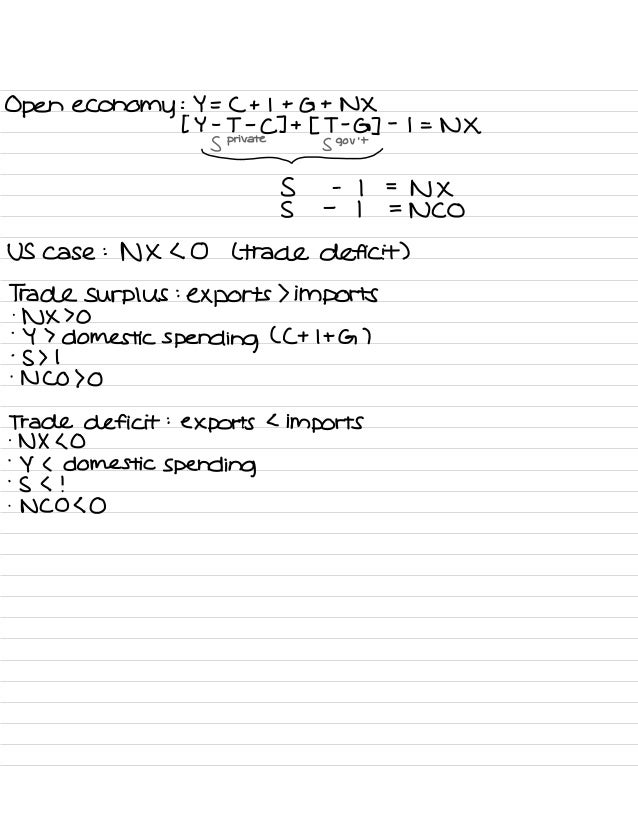 Open economy: Y = C + I + G + NX
[Y - T - C] + [T - G] - I = NX
S private S gov't
S - I = NX
S - I = NCO
US case: NX < 0 (trade deficit)
Trade surplus: exports > imports
· NX > 0
· Y > domestic spending (C + I + G)
· S > I
· NCO > 0
Trade deficit: exports < imports
· NX < 0
· Y < domestic spending
· S < !
· NCO < 0